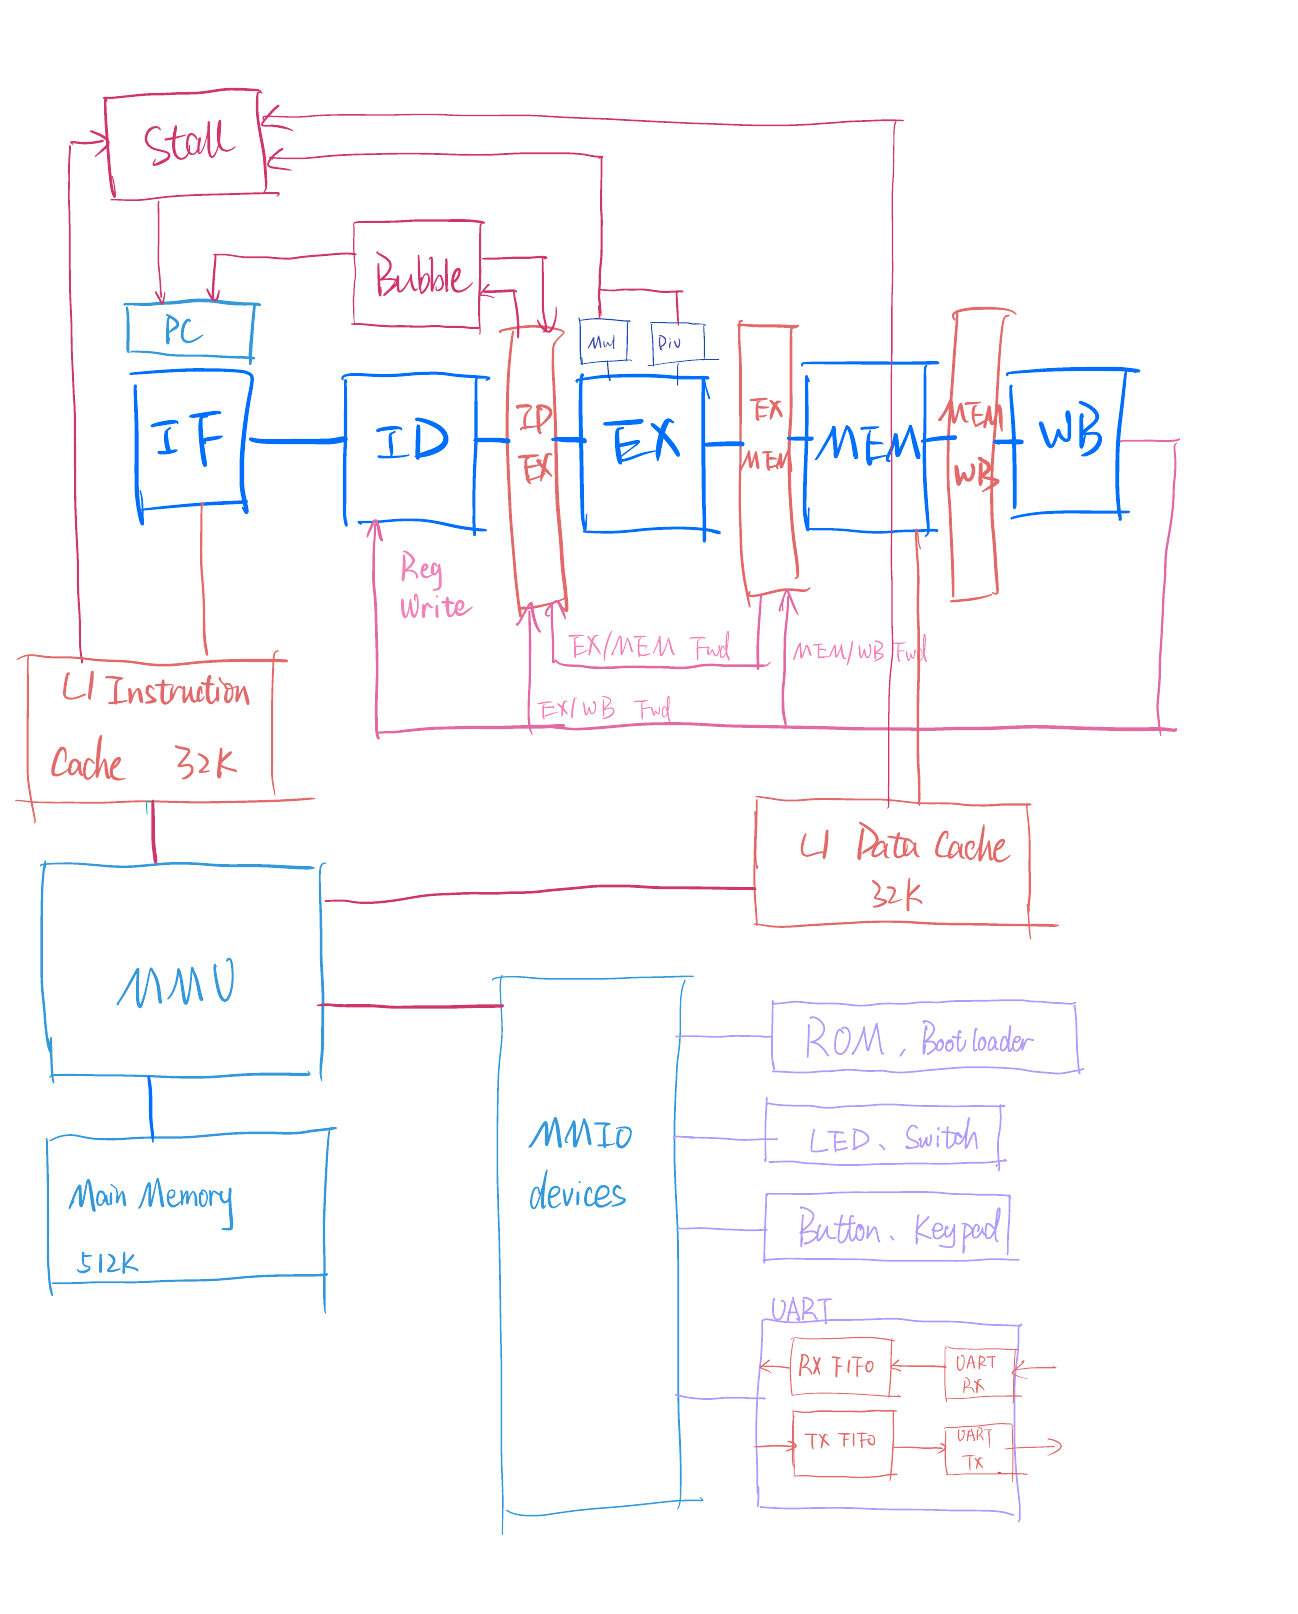 Stall
Bubble
PC
Mul
Div
IF
ID
ID
EX
EX
EX
MEM
MEM
MEM
WB
WB
Reg
Write
EX/MEM Fwd
MEM/WB Fwd
EX/WB Fwd
L1 Instruction
Cache 32K
L1 Data Cache
32K
MMU
Main Memory
512K
MMIO
devices
ROM、Bootloader
LED、Switch
Button、Keypad
UART
RX FIFO
UART
RX
TX FIFO
UART
TX